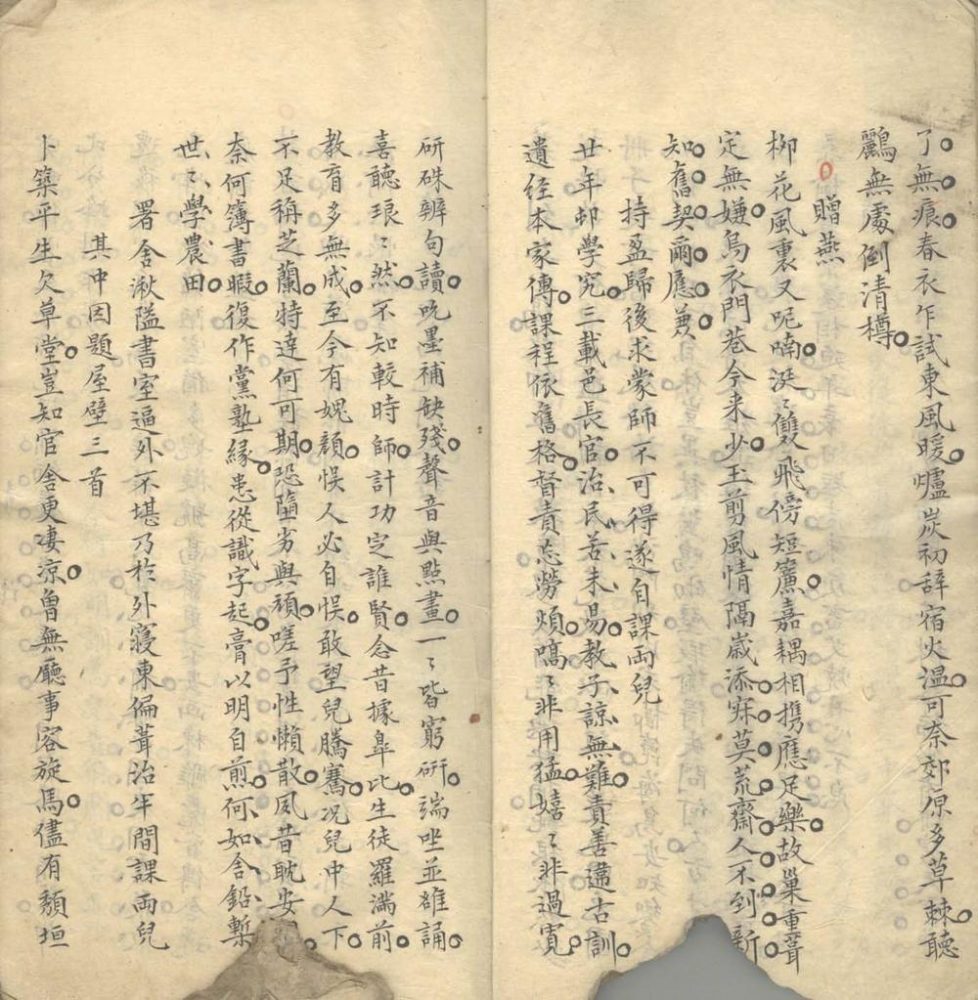 了無痕春衣乍試東風暖爐炭初辞宿火温可奈郊原多草棘聴
鸝無處倒清樽
贈燕
柳花風裏又呢喃泛〻雙飛傍短簾嘉耦相携應足樂故巢重葺
定無嫌烏衣門巷今來少玉剪風情隔歲添寂莫荒齋人不到新
知舊契爾應兼
持盈歸後求蒙師不可得遂自課兩兒
廿年邨學究三載邑長官治民苦未易教子諒無難責善違古訓
遺經本家傳課程依舊格督責忘勞煩嗃〻非用猛嬉〻非過寬
研硃辨句讀吮墨補缺殘聲音與點畫一〻皆窮研端坐並雒誦
喜聽琅〻然不知較時師計功定誰賢念昔據皐比生徒羅滿前
教育多無成至今有媿顏悮人必自悮敢望兒騰騫况兒中人下
不足稱芝蘭特達何可期恐墮劣與頑嗟予性懶散夙昔耽安
奈何簿書暇復作黨塾緣患從識字起膏以明自煎何如舍鉛槧
世〻學農田
署舍湫隘書室逼外不堪乃於外寢東偏葺治半間課兩兒
其中因題屋壁三首
卜築平生欠草堂豈知官舍更凄凉曾無廳事容旋馬儘有頹垣